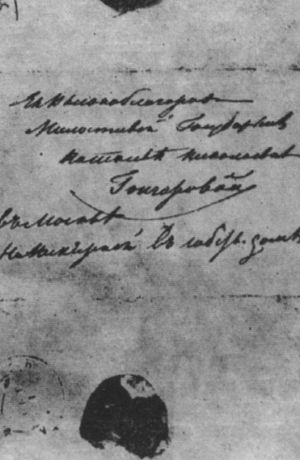 Ея Высокоблагород
Милостивой Государыне
Наталье Николаевне
Гончаровой
въ Москве
на Никитской въ собств. доме